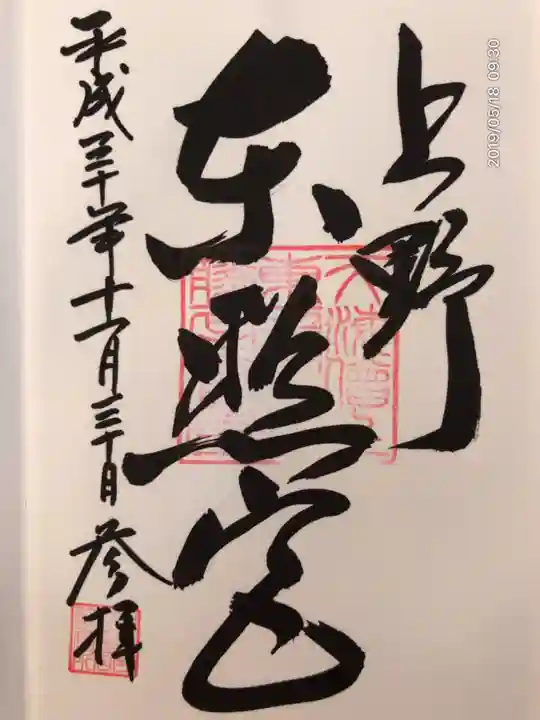 上野
東照宮
平成三十年十一月三十日 参拝
2019/05/18 09:30